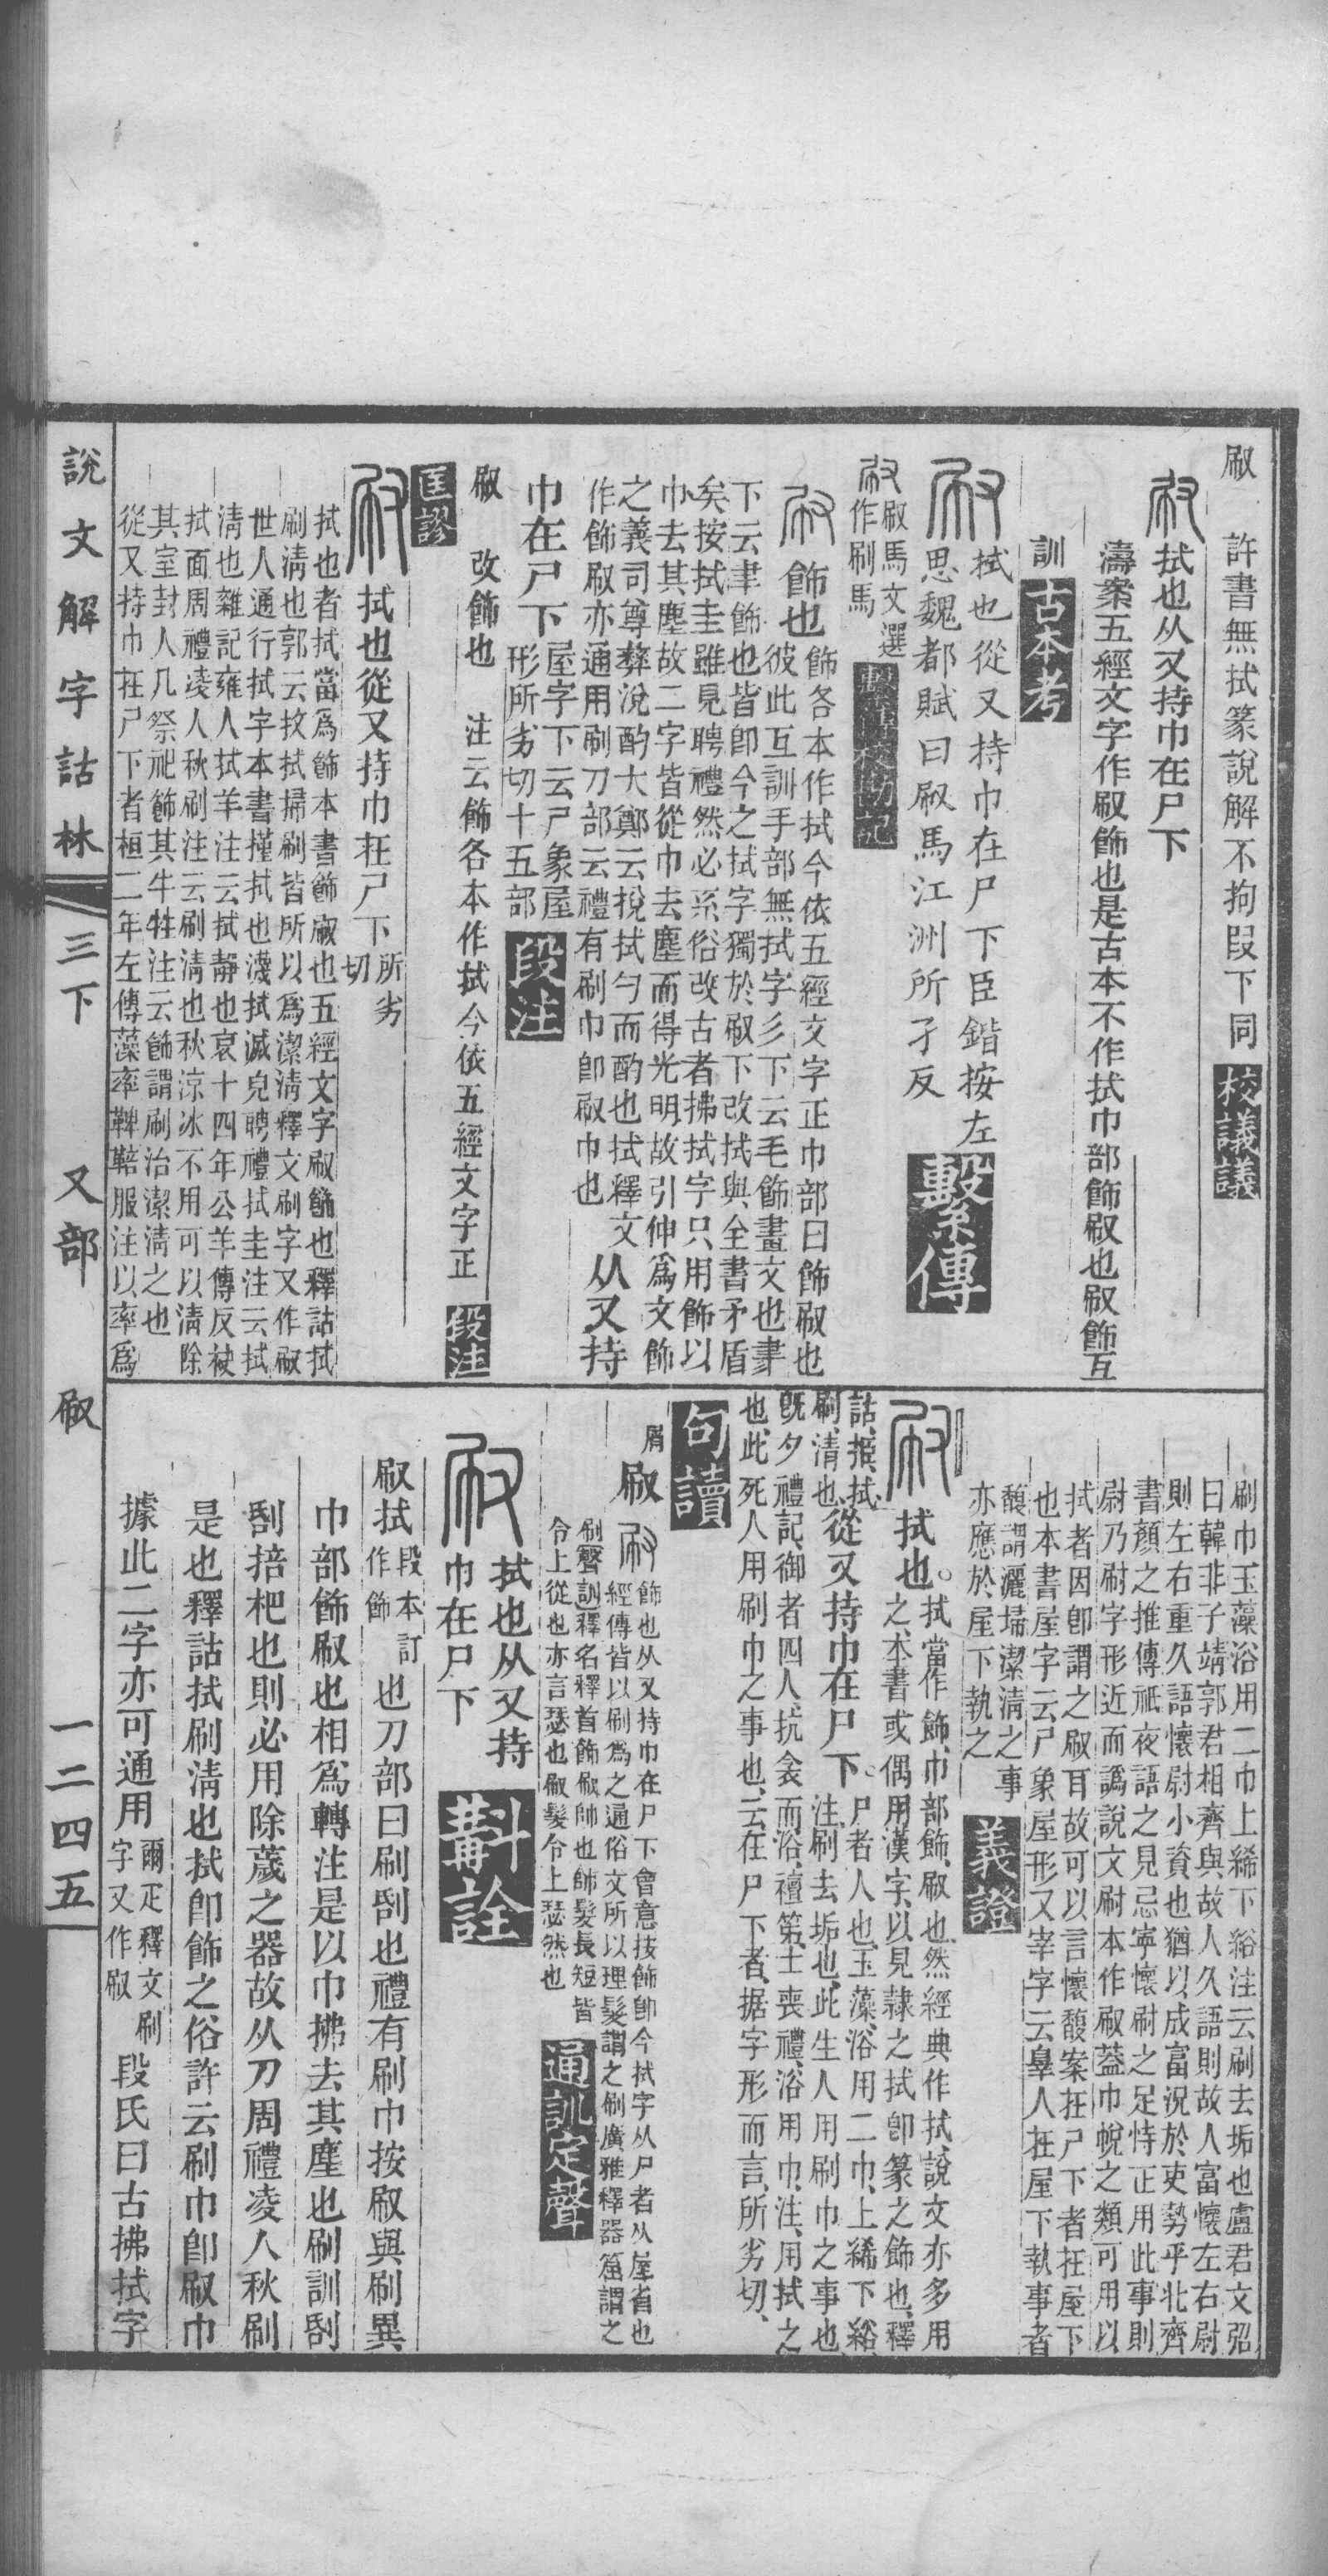 㕞　許書無拭篆說解不拘叚下同　校議議
拭也从又持巾在尸下
濤案五經文字作㕞飾也是古本不作拭巾部飾㕞也㕞飾互
訓　古本考
拭也從又持巾在尸下臣鍇按左
思魏都賦曰㕞馬江洲所孑反　繫傳
㕞馬文選
作刷馬　繫傳校勘記
飾也
飾各本作拭今依五經文字正巾部曰飾㕞也
彼此互訓手部無拭字彡下云毛飾畫文也聿
下云聿飾也皆卽今之拭字獨於㕞下改拭與全書矛盾
矣按拭圭雖見聘禮然必系俗改古者拂拭字只用飾以
巾去其塵故二字皆從巾去塵而得光明故引伸爲文飾
之義司尊彝涚酌大鄭云挩拭勺而酌也拭釋文
作飾㕞亦通用刷刀部云禮有刷巾卽㕞巾也
从又持
巾在尸下
屋字下云尸象屋
形所劣切十五部　段注
㕞　改飾也　注云飾各本作拭今依五經文字正　段注
匡謬
拭也從又持巾在尸下
所劣
切
拭也者拭當爲飾本書飾㕞也五經文字㕞飾也釋詁拭
刷清也郭云抆拭掃刷皆所以爲潔清釋文刷字又作㕞
世人通行拭字本書㨷拭也瀎拭滅皃聘禮拭圭注云拭
清也雜記雍人拭羊注云拭靜也哀十四年公羊傳反袂
拭面周禮凌人秋刷注云刷清也秋涼冰不用可以清除
其室封人凡祭祀飾其牛牲注云飾謂刷治潔清之也
從又持巾在尸下者桓二年左傳藻率鞞鞛服注以率爲
刷巾玉藻浴用二巾上絺下綌注云刷去垢也盧君文弨
曰韓非子靖郭君相齊與故人久語則故人富懷左右刷
則左右重久語懷尉小資也猶以成富況於吏勢乎北齊
書顏之推傳祇夜語之見忌寧懷㕞之足恃正用此事則
尉乃㕞字形近而譌說文㕞本作㕞葢巾帨之類可用以
拭者因卽謂之㕞耳故可以言懷馥案在尸下者在屋下
也本書屋字云尸象屋形又宰字云辠人在屋下執事者
馥謂灑埽潔清之事
亦應於屋下執之　義證
拭也。
拭當作飾、巾部飾、㕞也、然經典作拭、說文亦多用
之、本書或偶用漢字、以見隸之拭卽篆之飾也、釋
詁、挋、拭、
刷、清也、
從又持巾在尸下、
尸者人也、玉藻、浴用二巾、上絺下綌、
注、刷去垢也、此生人用刷巾之事也、
旣夕禮記、御者四人、抗衾而浴、襢笫、士喪禮、浴用巾、注、用拭之
也、此死人用刷巾之事也、云在尸下者、据字形而言、所劣切、
句讀
屑
㕞
飾也从又持巾在尸下會意按飾卽今拭字从尸者从屋省也
經傳皆以刷爲之通俗文所以理髮謂之刷廣雅釋器筁謂之
刷聲訓釋名釋首飾㕞帥也帥髮長短皆
令上從也亦言瑟也㕞髮令上瑟然也　通訓定聲
拭也从又持
巾在尸下　斠詮
㕞拭
段本訂
作飾
也刀部曰刷刮也禮有刷巾按㕞與刷異
巾部飾㕞也相爲轉注是以巾拂去其塵也刷訓刮
刮掊杷也則必用除薉之器故从刀周禮凌人秋刷
是也釋詁拭刷清也拭卽飾之俗許云刷巾卽㕞巾
據此二字亦可通用
爾疋釋文刷
字又作㕞
段氏曰古拂拭字
說文解字詁林　三下　又部　㕞　一二四五